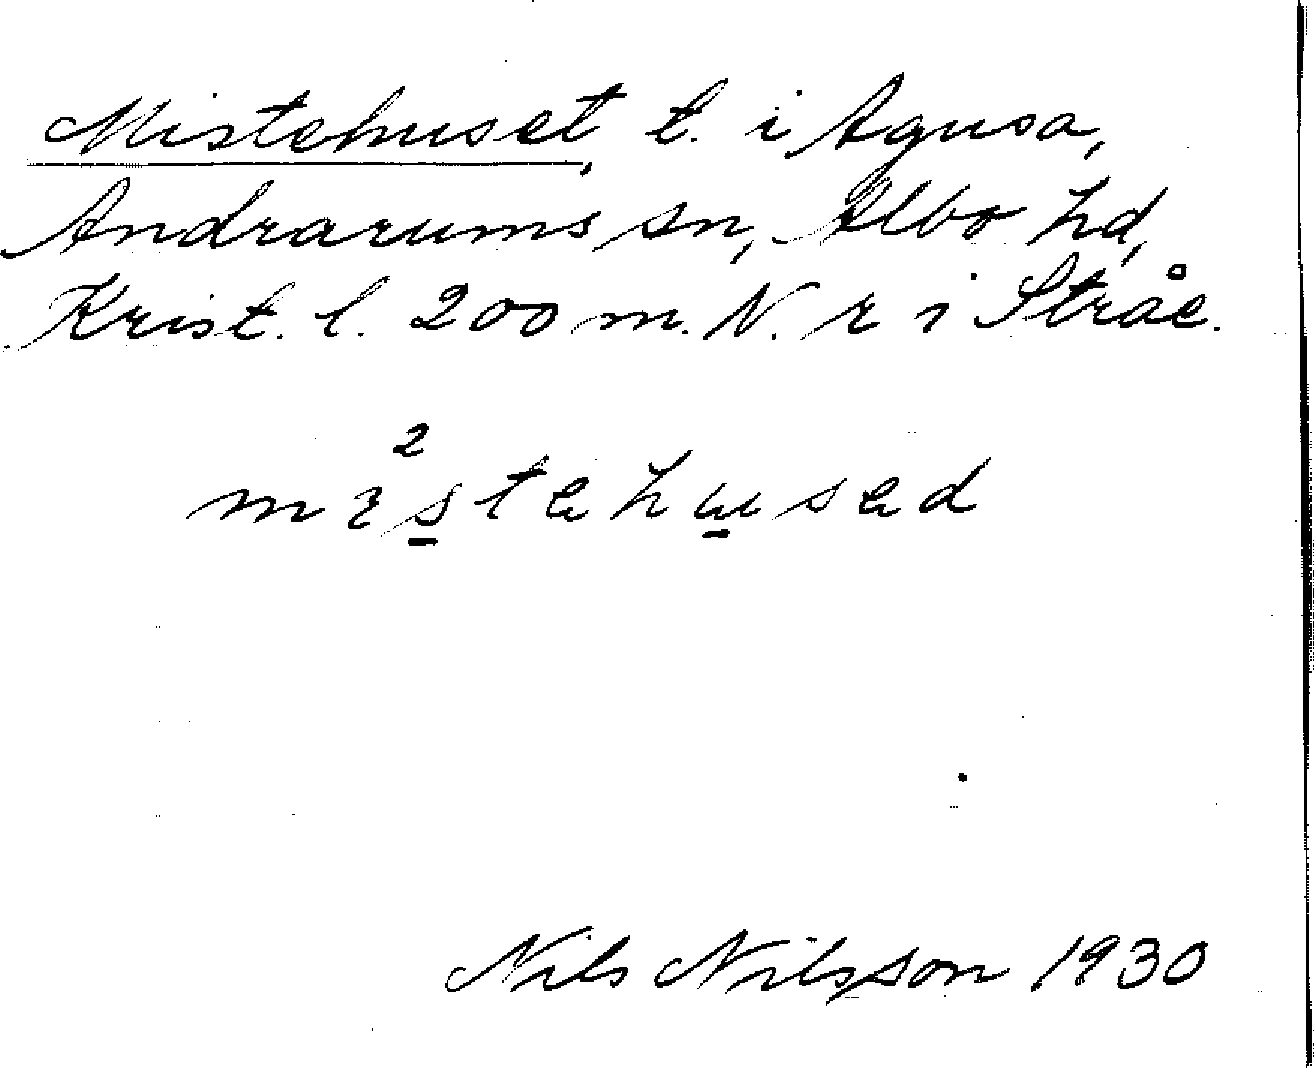 Mistehuset, t. i Agusa,
Andrarums sn, Albo hd,
Krist. l. 200 m. N. r i Stråe.
2
mistehused
Nils Nilsson 1930